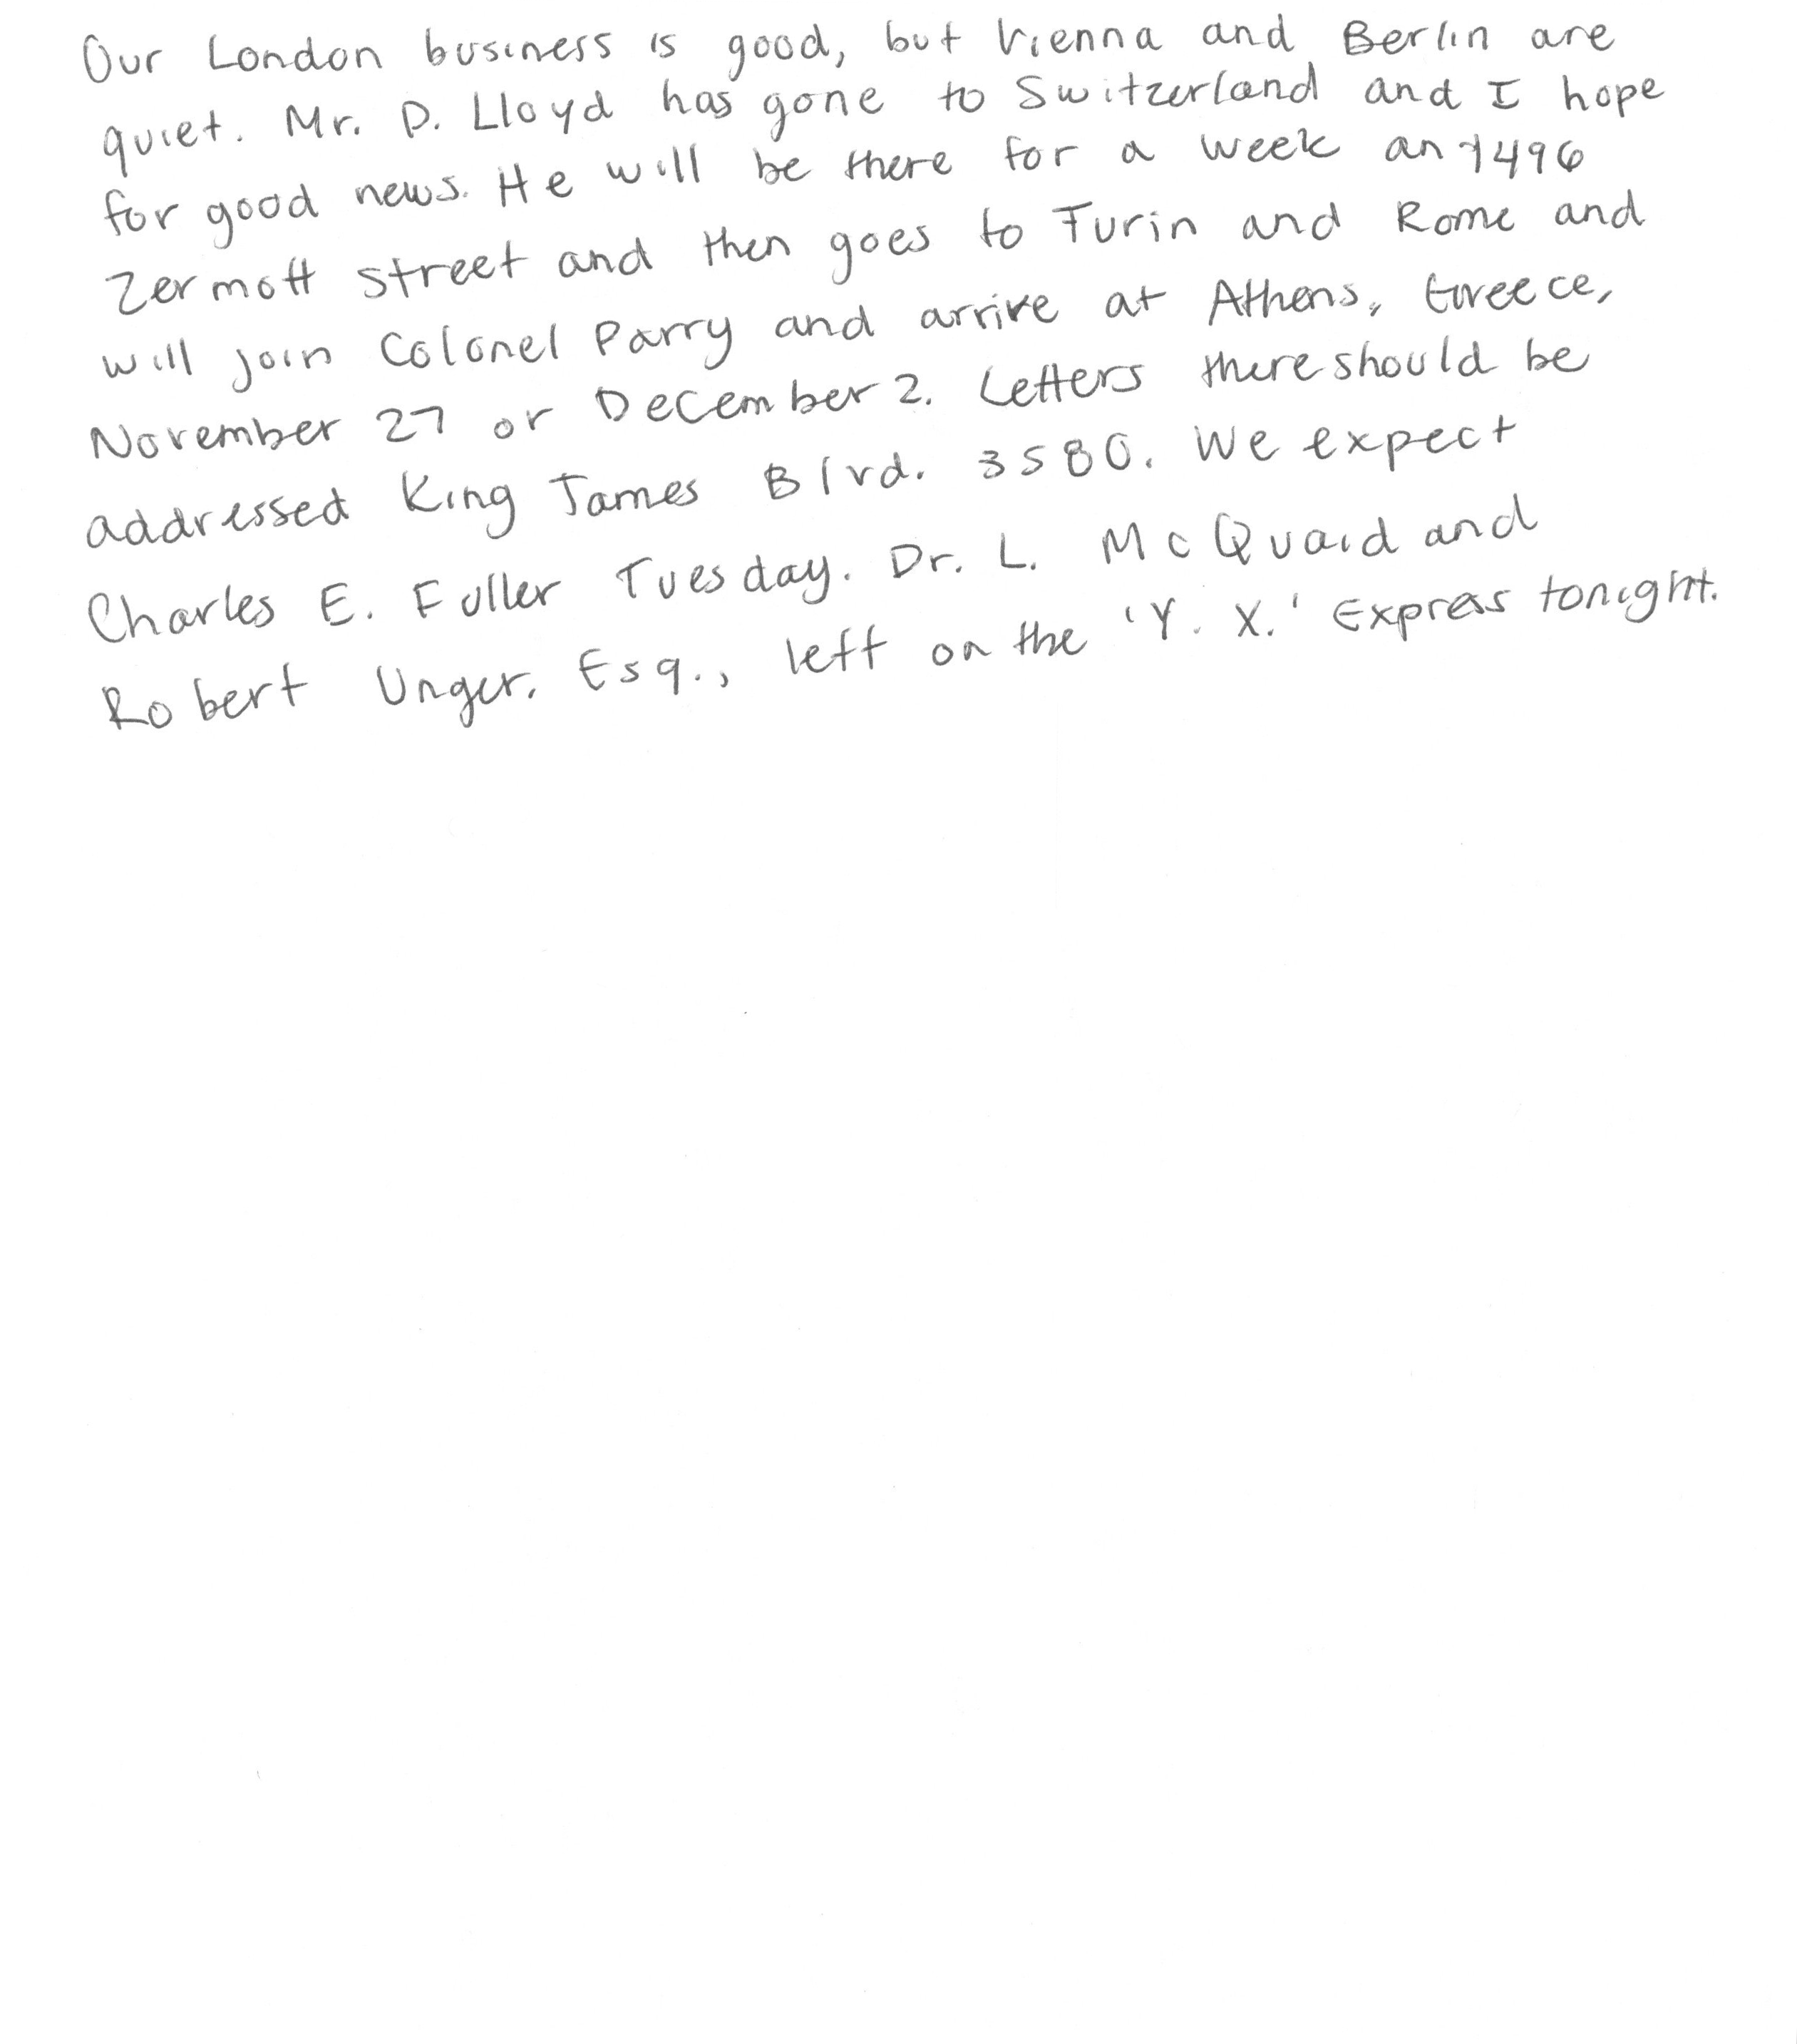 Our London business is good, but Vienna and Berlin are
quiet. Mr. D. Lloyd has gone to Switzerland and I hope
for good news. He will be there for a week an 1496
Zermott street and then goes to Turin and Rome and
will join Colonel Parry and arrive at Athens, Greece,
November 27 or December 2. Letters there should be
addressed King James Blvd. 3580. We expect
Charles E. Fuller Tuesday. Dr. L. McQuaid and
Robert Unger, Esq., left on the 'Y. X.' Express tonight.